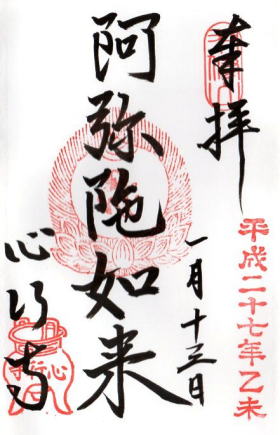 奉拝
平成二十七年乙未
一月十三日
阿弥陀如来
心行寺
心行寺